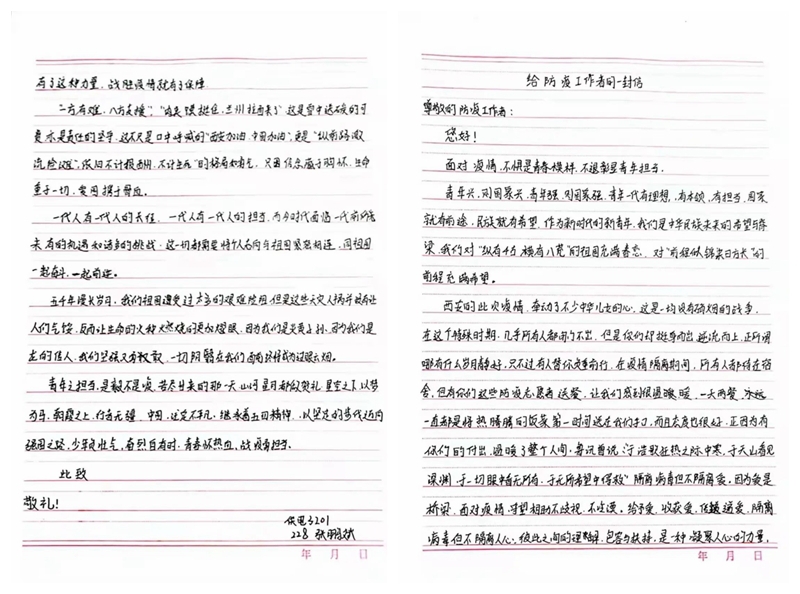 给防疫工作者的一封信
尊敬的防疫工作者：
您好！
面对疫情，不惧是青春模样，不退彰显青年担当。
青年兴，则国家兴，青年强，则国家强。青年一代有理想，有本领，有担当，国家
就有前途，民族就有希望。作为新时代的新青年，我们是中华民族未来的希望与栋
梁，我们对“纵有千古，横有八荒”的祖国充满眷恋，对“前程似锦来日方长”的
前程充满希望。
西安的此次疫情，牵动了不少中华儿女的心，这是一场没有硝烟的战争，
在这个特殊时期，几乎所有人都闭门不出，但是你们却挺身而出，逆流而上，正所谓
哪有什么岁月静好，只不过有人替你负重前行。在疫情隔离期间，所有人都待在宿
舍，但有你们这些防疫志愿者送餐，让我们感到很温暖，一天两餐，
一直都是将热腾腾的饭菜第一时间送在我们手打，而且态度也很好，正因为有
你们的付出，温暖了整个人间。鲁迅曾说：于浩歌狂热之际中寒，于天上看见
深渊，于一切眼中看见无所有，于无所希望中得救”隔离病毒但不隔离爱，因为爱是
桥梁，面对疫情，守望相助不歧视，不吃漠，给予爱，收获爱，传递爱，隔离
病毒但不隔离人心，彼此之间的理解，包容与扶持，是一种凝聚人心的力量，
年 月 日
有了这种力量，战胜疫情就有了保障。
“一方有难，八方支援”，“
负亦是责任的坚守，这不只是口中呼喊的“西安加油，中国加油”，更是“纵前路激
流险滩”，依旧不计报酬，不计生死”的
重于一切，爱因携手响应。
一代人有一代人的责任，一代人有一代人的担当，而今时代面临一代前所
未有的机遇和诸多的挑战，这一切都需要将个人志向与祖国紧密相连，同祖国
一起奋斗，一起前进。
五千年漫长岁月，我们祖国遭受过太多的艰难险阻，但是这些天灾人祸并没有让
人们气馁，反而让生命的火种燃烧的更加耀眼，因为我们是炎黄子孙，因为我们是
龙的传人，我们坚强又勇敢，一切阴霾在我们面前终将成为过眼云烟。
青年之担当，是毅不是馁，苦尽甘来的那一天，山河星月都做贺礼，星空之下，以梦
为马，朝霞之上，行者无疆，中国，这定不凡，继承着五四精神，以坚定的步伐迈向
强国之路，少年良壮气，奋烈自有时，青春城热血，战疫有担当。
此致
敬礼！
供电3201
228 张鹏斌
年 月 日